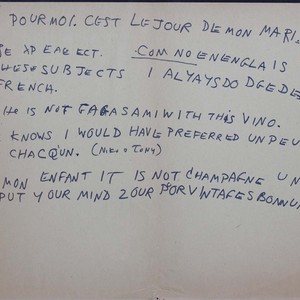 POURMOI. C'EST LE JOUR DE MON MARI
JE XPEREECT. COM NO ENENGLAIS
THESE SUBJECTS I ALYAYS DO DGEDE
FRENCH.
He IS NOT GAGASAMI WITH THIS VINO.
KNOWS I WOULD HAVE PREFERRED UN PEU
CHACQ'UN. (NIKI O TONY)
MON ENFANT IT IS NOT CHAMPAGNE UN
PUT YOUR MIND ZOUR VINTAGES BONNU